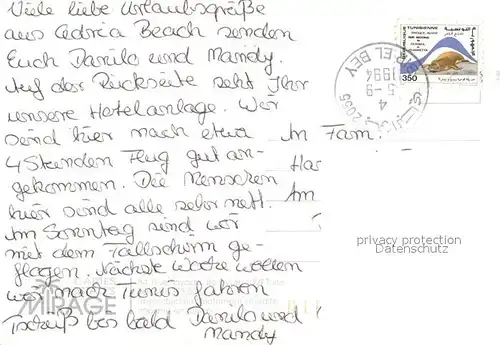 Viele liebe Urlaubsgrüße
aus Adria Beach senden
Euch Danilo und Mandy.
Auf der Rückseite seht Ihr
unsere Hotelanlage. Wir
sind hier nach etwa
4 Stunden Flug gut an-
gekommen. Die Menschen
hier sind alle sehr nett. Am
Am Sonntag sind wir
mit dem Fallschirm ge-
flogen. Nächste Woche wollen
wir nach Tunis fahren
Tschüß bis bald Danilo und
Mandy
An Fam.
Has
Am
MIRAGE
REPUBLIQUE TUNISIENNE
350
EL BEY
5-9
1994
4
2056
privacy protection
Datenschutz